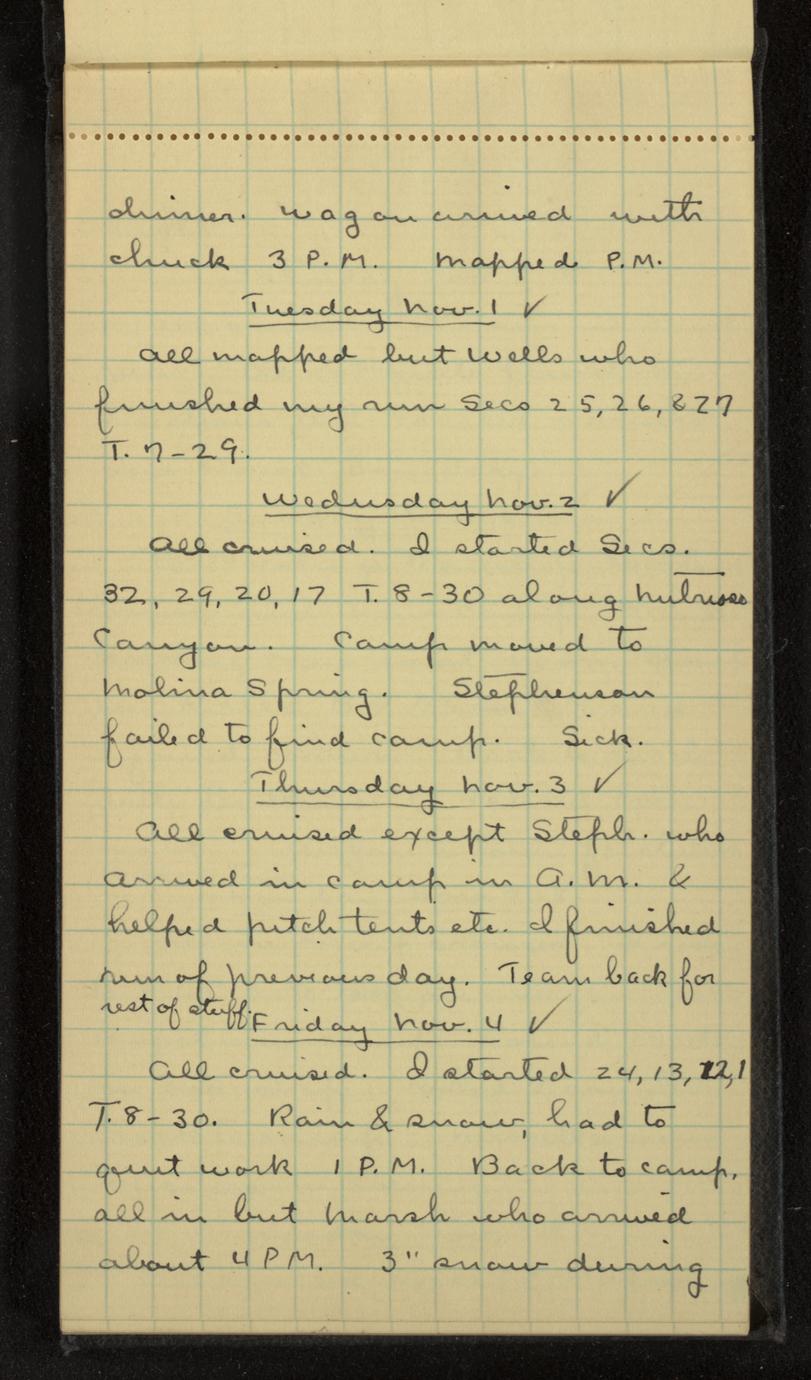 dinner. Wagon arrived with
chuck 3 P.M. Mapped P.M.
Tuesday Nov. 1 ✓
All mapped but Wells who
finished my run Secs 25, 26, & 27
T. 7-29.
Wednesday Nov. 2 ✓
All cruised. I started Secs.
32, 29, 20, 17 T. 8-30 along Nutrioso
Canyon. Camp moved to
Molina Spring. Stephenson
failed to find camp. Sick.
Thursday Nov. 3 ✓
All cruised except Steph. who
arrived in camp in A.M. &
helped pitch tents etc. I finished
run of previous day. Team back for
rest of stuff.
Friday Nov. 4 ✓
All cruised. I started 24, 13, 12, 1
T. 8-30. Rain & snow, had to
quit work 1 P.M. Back to camp,
all in but Marsh who arrived
about 4 PM. 3" snow during